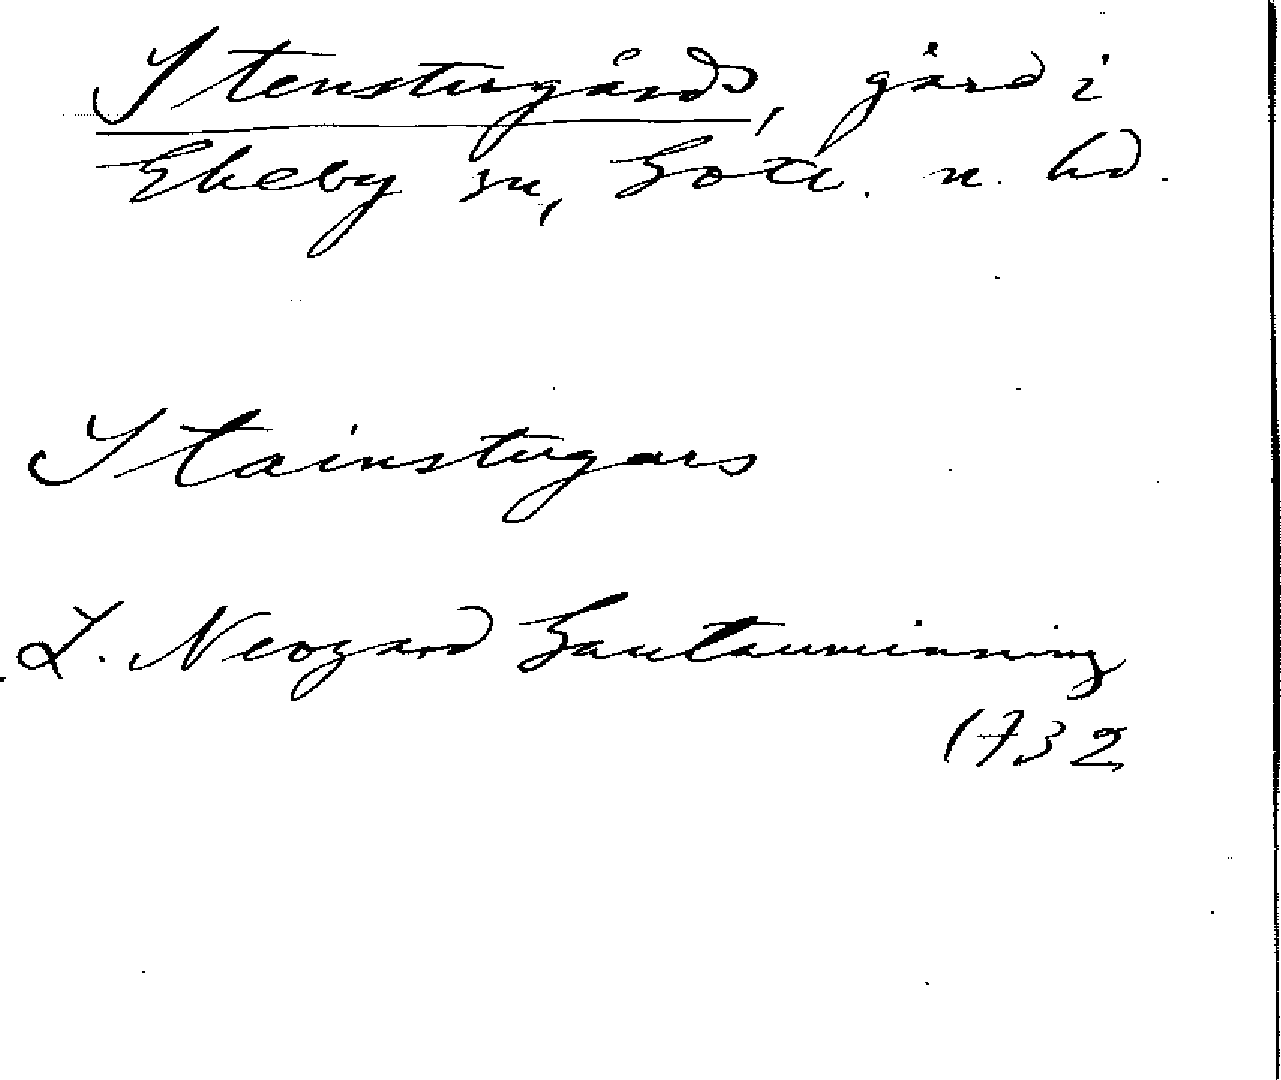 Stenstugårds, gård i
Ekeby sn, Gotl. n. hd.
Stainstugars
L. Neogard Gautauminning
1732